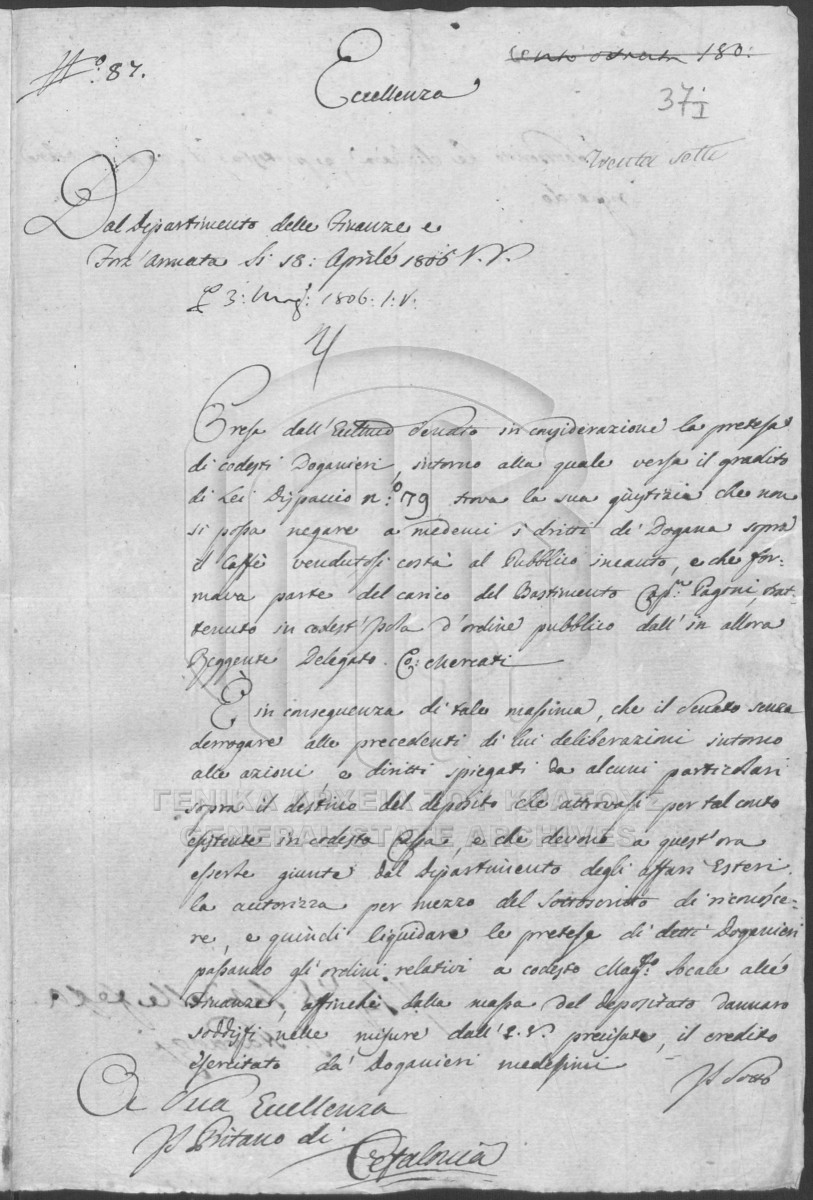 N.º 87.
Cento otranta 180:
Eccellenza
37 I
Trenta sette
Dal Dipartimento delle Finanze e
Forz'armata Li 18: Aprile 1806 V. S.
3: Magº: 1806. S. V.
Presa dall'Eccmo Senato in considerazione la pretesa
di codesti Doganieri, intorno alla quale versa il gradito
di Lei Dispaccio n.º 79 trova la sua giustizia che non
si possa negare a medemi i dritti di Dogana sopra
il Caffè vendutosi costà al Pubblico incanto, e che for-
mava parte del carico del Bastimento Capn. Pagoni, trat-
tenuto in codest'Isola d'ordine pubblico dall'in allora
Reggente Delegato Co: Mercati
È in conseguenza di tale massima, che il Senato senza
derrogare alle precedenti di lui deliberazioni intorno
alle azioni, e diritti spiegati da alcuni particolari
sopra il destino del deposito che attrovasi per tal conto
esistente in codesta Cassa, e che devono a quest'ora
esserle giunte dal Dipartimento degli affari Esteri.
la autorizza per mezzo del Sottoscritto di riconosce-
re, e quindi liquidare le pretese di detti Doganieri
passando gli ordini relativi a codesto Magto. locale alle
Finanze, affinchè dalla massa del depositato dannaro
soddisfi nelle misure dall'E.V. precisate, il credito
esercitato da' Doganieri medesimi
Il Sotto
A Sua Eccellenza
Il Pritano di
Cefalonia
ΓΕΝΙΚΑ ΑΡΧΕΙΑ ΤΟΥ ΚΡΑΤΟΥΣ
GENERAL STATE ARCHIVES